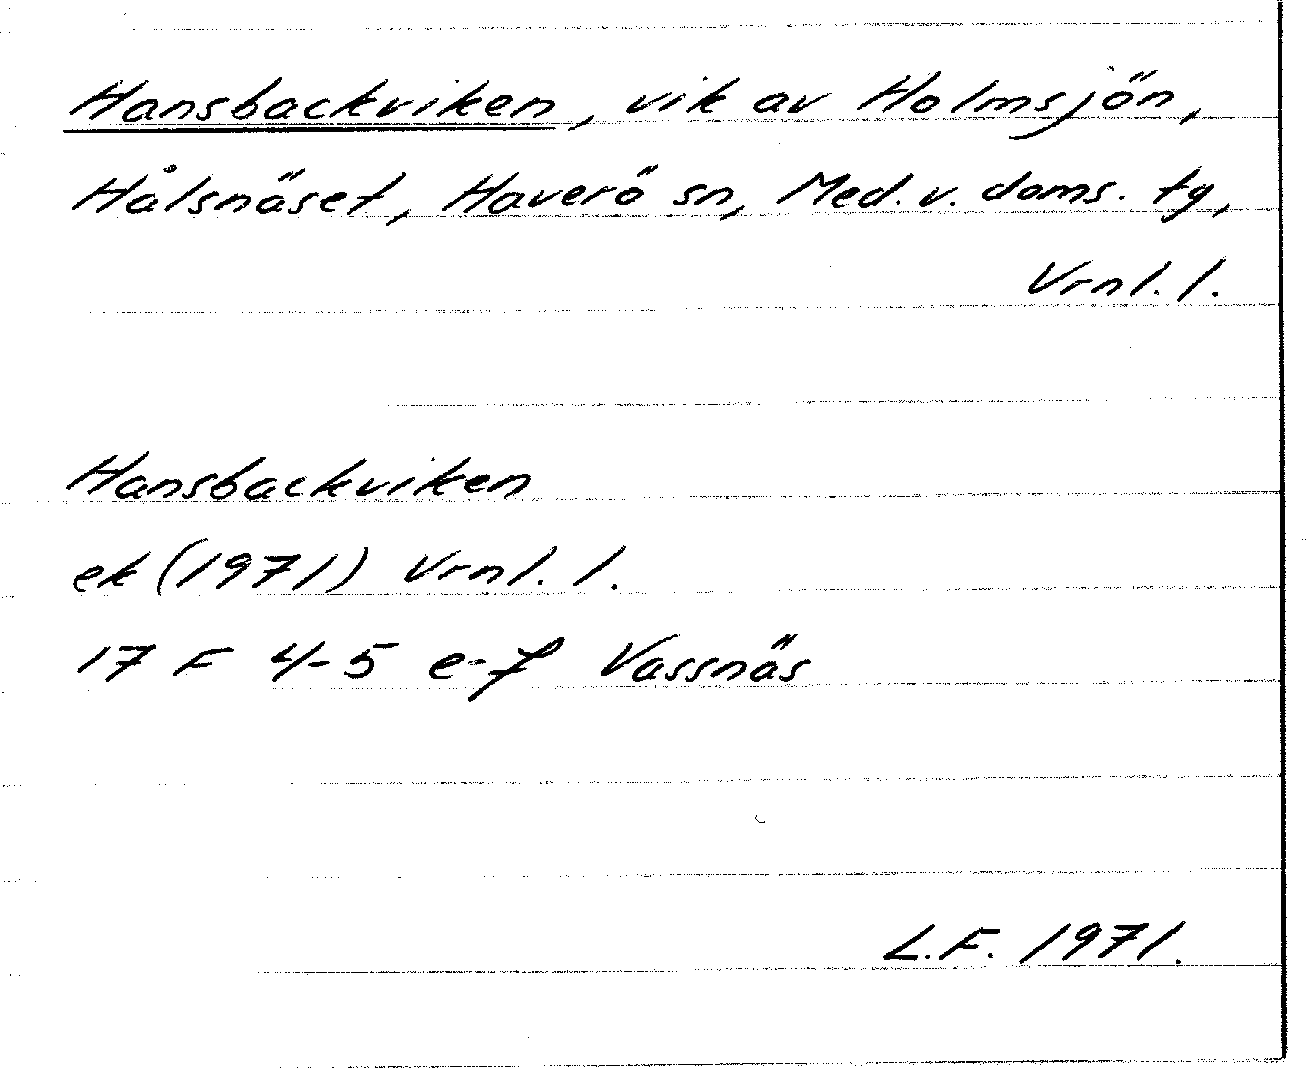 Hansbackviken, vik av Holmsjön,
Hålsnäset, Haverö sn, Med. v. doms. tg,
Vrnl. l.
Hansbackviken
ek (1971) Vrnl. l.
17 F 4-5 e-f Vassnäs
L.F. 1971.